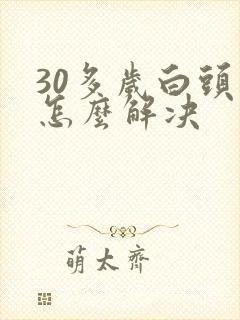 30多歲白頭
怎麼解決
萌太齊